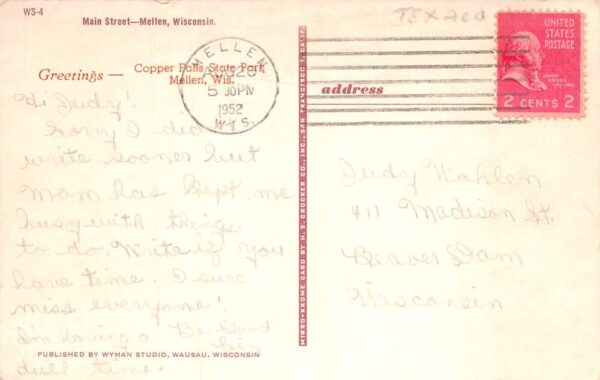 WS-4
Main Street—Mellen, Wisconsin.
Greetings —
Copper Falls State Park
Mellen, Wis.
Hi Judy!
Sorry I didn't
write sooner but
mom has kept me
busy with things
to do. Write if you
have time. I sure
miss everyone!
I'm having a
dull time.
Be Good
PUBLISHED BY WYMAN STUDIO, WAUSAU, WISCONSIN
MIRRO-KROME CARD BY H. S. CROCKER CO., INC., SAN FRANCISCO 1, CALIF.
TEXACO
MELLEN
5 30PM
1952
WIS.
UNITED
STATES
POSTAGE
JOHN
ADAMS
2 CENTS 2
address
Judy Wahlen
411 Madison St.
Beaver Dam
Wisconsin